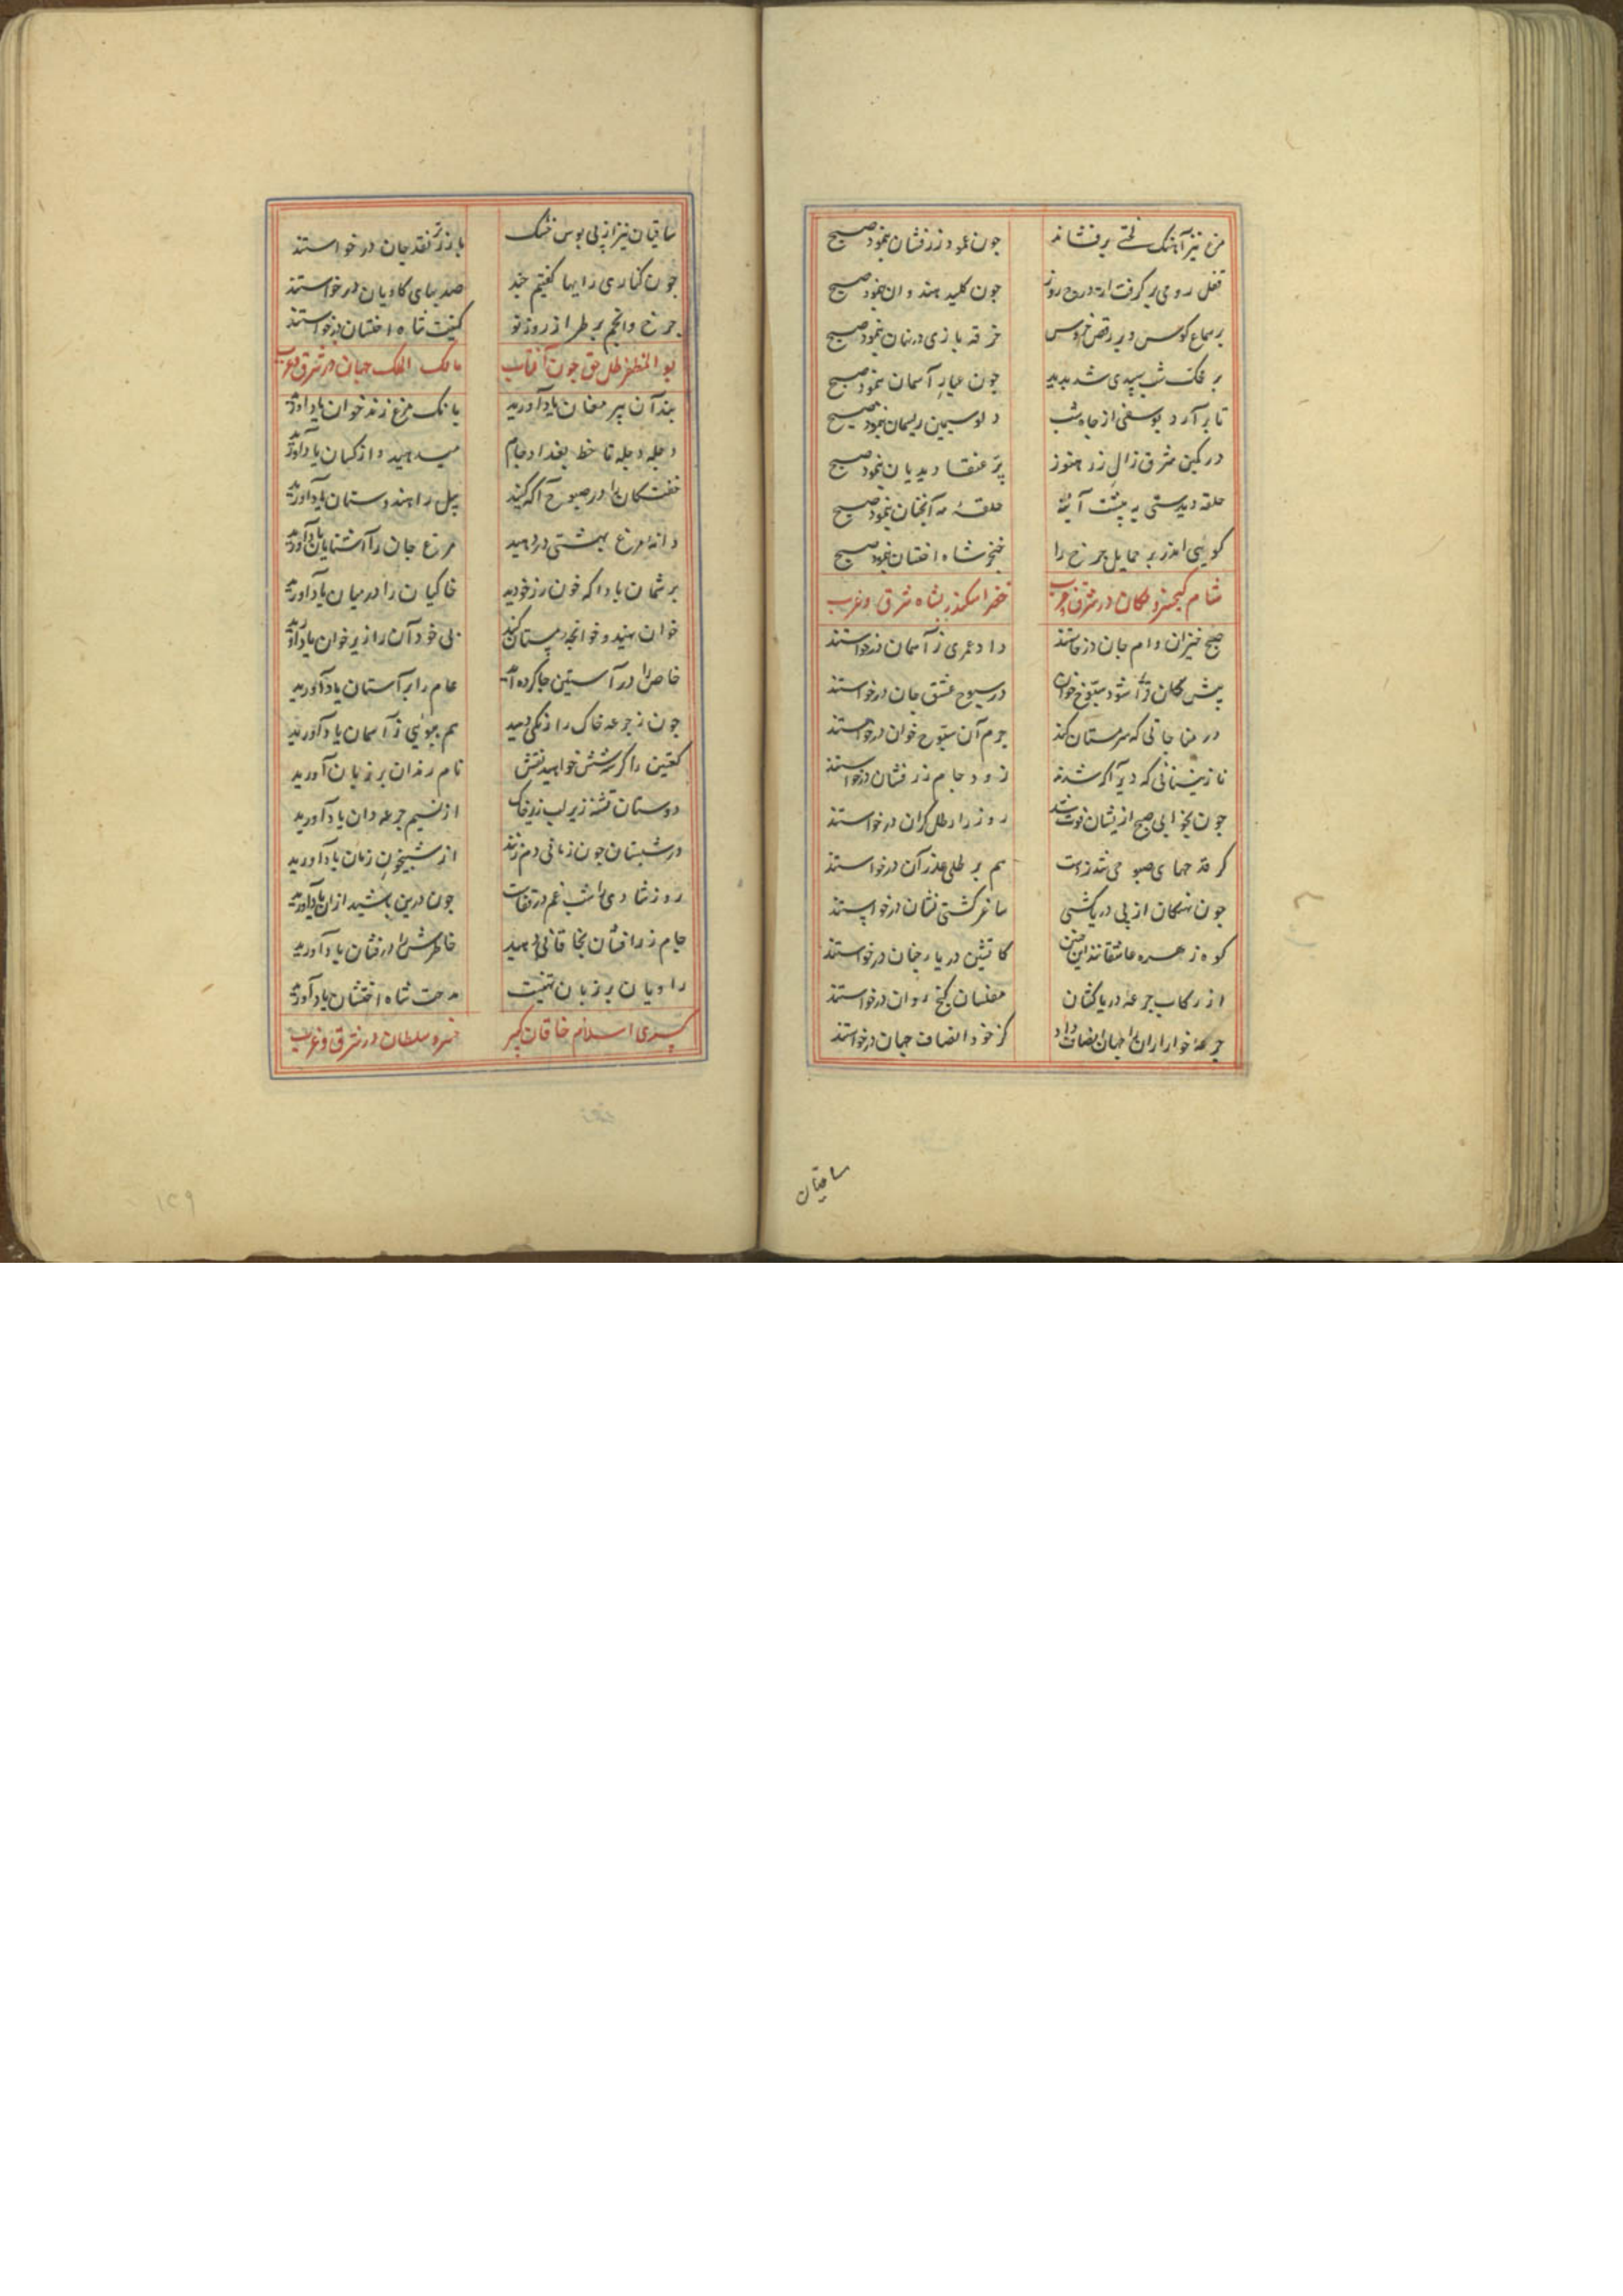 مرغ تیز آهنگ لختی پر فشاند
چون عمود زرفشان بنمود صبح
قفل رومی بر گرفت از درج روز
چون کلید هندوان بنمود صبح
بر سماع کوس و بر رقص خروس
خرقه بازی در نهان بنمود صبح
بر محک شب سپیدی شد پدید
چون عیار آسمان بنمود صبح
تا بر آرد یوسفی از چاه شب
دلو سیمین ریسمان بنمود صبح
در کمین شرق زال زر هنوز
پر عنقا دیدبان بنمود صبح
حلقه دیدستی به پشت آینه
حلقهٔ مه آنچنان بنمود صبح
گویی اندر بر حمایل چرخ را
خنجر شاه اخستان بنمود صبح
شام کیخسرو مکان در شرق و غرب
خضر اسکندر نشان شرق و غرب
صبح خیزان وام جان درخواستند
داد عمری ز آسمان درخواستند
پیش کان سبوح خوان
در سبوح عشق جان درخواستند
در مناجاتی که سرمستان کنند
جرم آن سبوح خوان درخواستند
نازنینانی که دیر آگه شدند
زود جام زرفشان درخواستند
چون بخوابی صبح ازیشان فوت شد
روز را رطل گران درخواستند
گر قدحهای صبوحی شد ز دست
هم بر طلی عذر آن درخواستند
چون نهنگان از پی دریاکشی
ساغر کشتی نشان درخواستند
کوه زهره عاشقانند این چنین
کاتشین دریا چنان درخواستند
از رکاب جرعه دریا کشان
مفلسان گنج روان درخواستند
جرعه خواران را جهان انصاف داد
کز خود انصاف جهان درخواستند
ساقیان
ساقیان نیز از پی بوس خشک
با زر تر نقد جان درخواستند
چون کناری را بها گفتیم چند
صد بهای کاویان درخواستند
چرخ و انجم بر طراز روز نو
کنیت شاه اخستان درخواستند
بو المظفر ظل حق چون آفتاب
مالک الملک جهان در شرق و غرب
پند آن پیر مغان یاد آورید
بانگ مرغ زند خوان یاد آورید
دجله دجله تا خط بغداد جام
میدهید و از کسان یاد آورید
خفتگان را در صبوح آگه کنید
پیل را هندوستان یاد آورید
دانهٔ مرغ بهشتی در دهید
مرغ جان را آشیان یاد آورید
بر شمان بادا که خون رز خورید
خاکیان را در میان یاد آورید
خوان نهید و خوانچه مستان کنید
بی خود آن را زیر خوان یاد آورید
خاص را در آستین جا کرده‌اند
عام را بر آستان یاد آورید
چون ز جرعه خاک را رنگی دهید
هم ببوئی ز آسمان یاد آورید
کعبتین را گر سه شش خواهید نقش
نام رندان بر زبان آورید
دوستان تشنه زیر لب زیر خاک
از نسیم جرعه دان یاد آورید
در شبستان چون زمانی دم زنند
از شبیخون زمان یاد آورید
روز شادی را شب غم در قفاست
چون درین باشید از آن یاد آورید
جام زرافشان بخاقانی دهید
خاطرش را درفشان یاد آورید
راویان بر زبان تهنیت
مدحت شاه اخستان یاد آورید
کسری اسلام خاقان کبیر
خسرو سلطان در شرق و غرب
۱۴۹